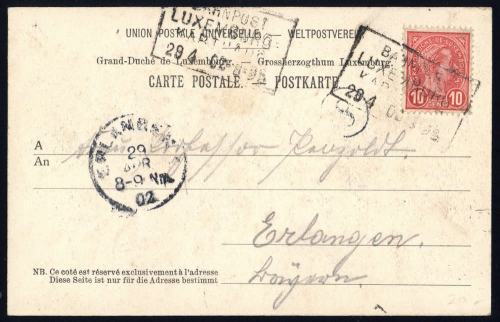 BAHNPOST
LUXEMBURG-
29 4 02
UNION POSTALE UNIVERSELLE. WELTPOSTVEREIN.
Grand-Duché de Luxembourg. Grossherzogthum Luxemburg.
CARTE POSTALE. POSTKARTE.
29 4 02
10 10
A
An Professor Penzoldt.
ERLANGEN
29
APR
8-9 Nm
02
Erlangen.
Bayern.
NB. Ce coté est réservé exclusivement à l'adresse
Diese Seite ist nur für die Adresse bestimmt